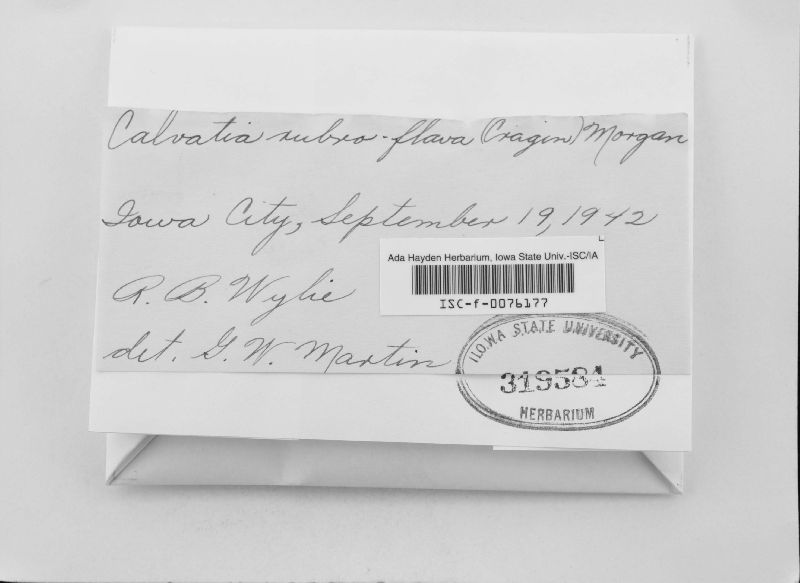 Calvatia rubro-flava (Cragin) Morgan
Iowa City, September 19, 1942
Ada Hayden Herbarium, Iowa State Univ.-ISC/IA
ISC-f-0076177
R. B. Wylie
det. G. W. Martin
IOWA STATE UNIVERSITY
319584
HERBARIUM